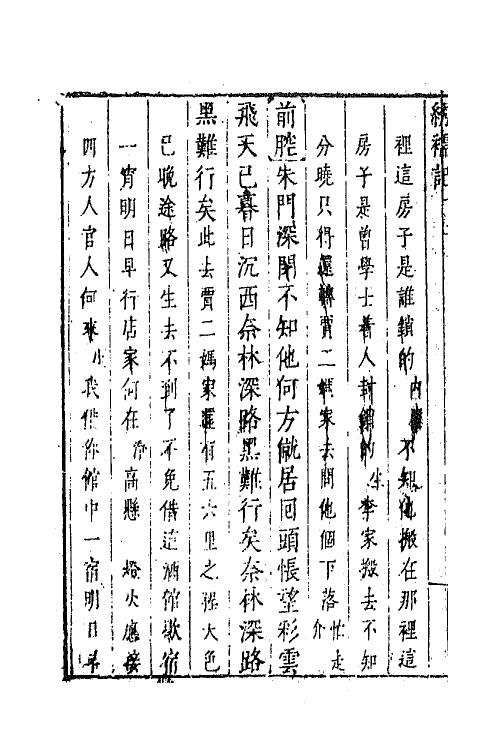 繡襦記
裡這房子是誰鎖的 內應 不知他搬在那裡這
房子是曾學士着人封鎖的 生 李家搬去不知
分曉只得還轉賈二媽家去問他個下落 忙走介
前腔 朱門深閉不知他何方僦居回頭悵望彩雲
飛天已暮日沉西奈林深路黑難行矣奈林深路
黑難行矣此去賈二媽家還有五六里之程天色
已晚途路又生去不到了不免借這酒館歇宿
一宵明日早行店家何在 淨 高懸 燈火應接
四方人官人何來 生 我借你館中一宿明日早